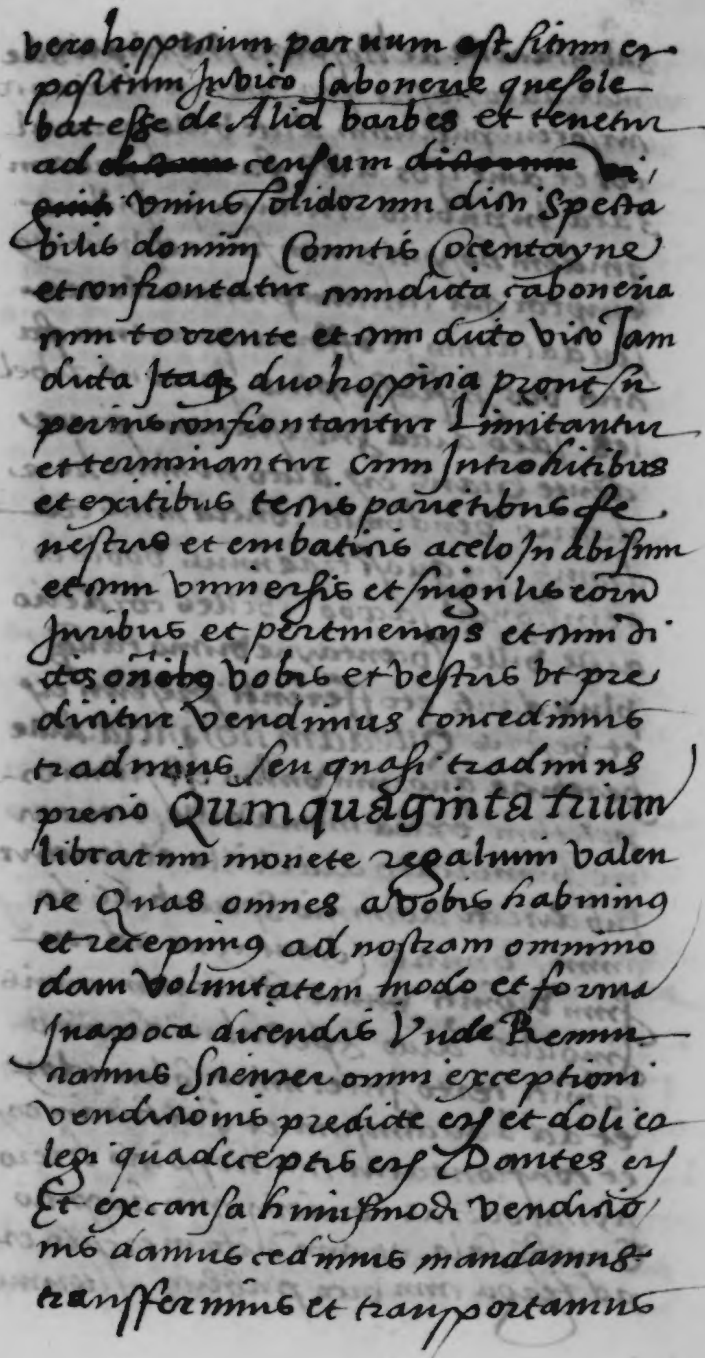 vero hospicium parvum est situm et
positum in vico saboneríe que sole
bat esse de Alia barbes et tenetur
ad censum
unius solidorum dicti specta
bilis domini Comitis Cocentayne
et confrontatur cum dicta çaboneria
cum torrente et cum dicto vico Jam
dicta Itaq duo hospicia prout su
perius confrontantur Limitantur
et terminantur cum Introhitibus
et exitibus tectis parietibus fe
nestris et embaticis a celo In abisum
et cum universis et singulis eorū
Juribus et pertinencijs et cum di
ctis oñibq vobis et vestris ut pre
dicitur vendimus concedimus
tradimus seu quasi tradimus
precio Qumquaginta trium
librarum monete regalium Valen
cie Quas omnes a vobis habuimq
et recepimq ad nostram omnimo
dam voluntatem modo et forma
In apoca dicendis Unde Renun
ciamus Scienter omni exceptioni
vendicionis predicte etc et doli ea
legi qua deceptis etc Dantes etc
Et ex causa huiusmodi vendicio
nis damus cedimus mandamus
transferimus et transportamus